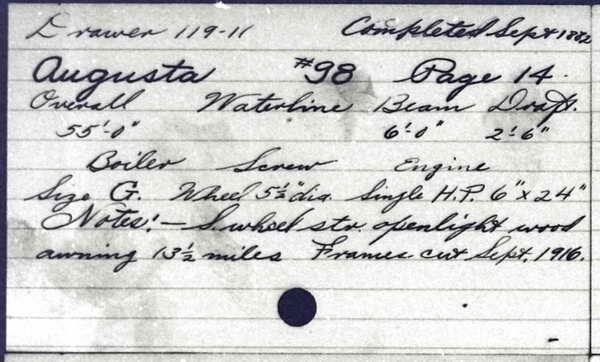 Drawer 119-11 Completed Sept 1882
Augusta #98 Page 14.
Overall Waterline Beam Draft.
55'-0" 6'-0" 2'-6"
Boiler Screw Engine
Size G. Wheel 5½" dia. Single H.P. 6" x 24"
Notes:- S. wheel str. openlight wood
awning 13½ miles Frames cut Sept. 1916.